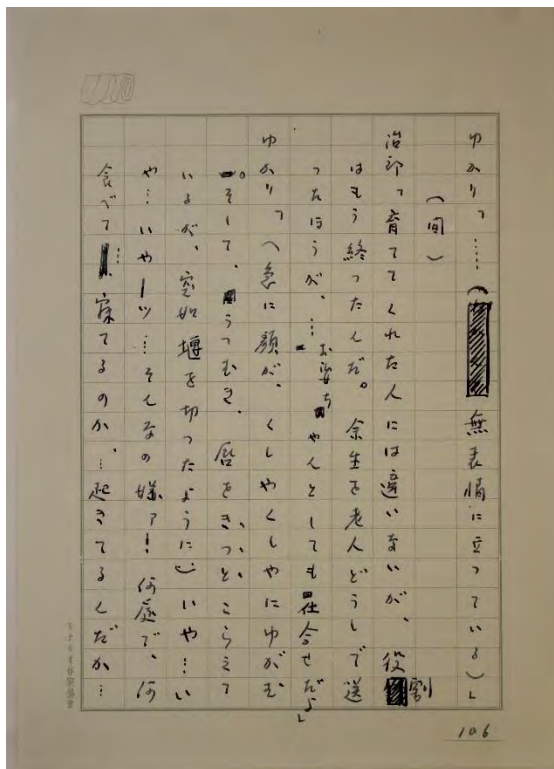 ゆかり「……(無表情に立っている)」
(間)
治郎「育ててくれた人には違いないが、役割
はもう終ったんだ。余生を老人どうしで送
ったほうが、…お婆ちゃんとしても仕合せだよ」
ゆかり「(急に顔が、くしやくしやにゆがむ
。そして、うつむき、唇をきっと、こらえて
いるが、突如堰を切ったように)いや…い
や…いやーッ…そんなの嫌ァ!何処で、何
食べて…寝てるのか、…起きてるんだか…
106